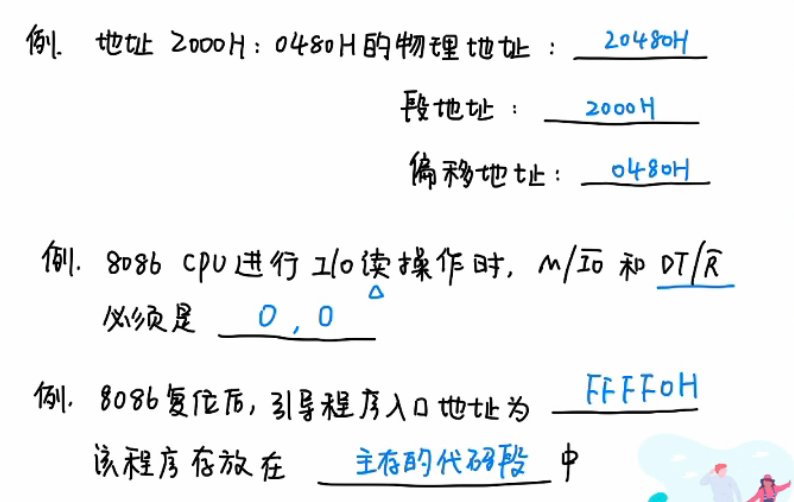 例. 地址 2000H：0480H的物理地址： 20480H
段地址： 2000H
偏移地址： 0480H
例. 8086 CPU进行 I/O读操作时, M/I̅O̅ 和 DT/R̅
必须是 0 , 0
例. 8086复位后, 引导程序入口地址为 FFFF0H
该程序存放在 主存的代码段 中